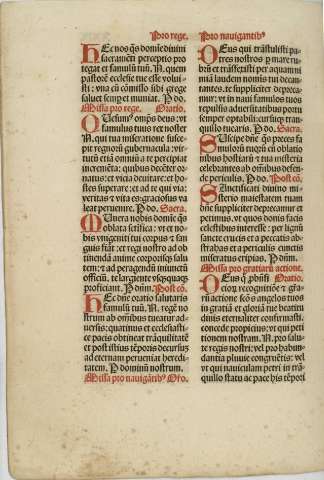 Pro rege.
Hec nos q̄s dom̄e diuini
sacramēti perceptio pro
tegat et famulū tuū. N. quem
pastorē ecclesie tue esse volui
sti: vna cū cōmisso sibi grege
saluet semp̱ et muniat. P̱ do.
Missa pro rege. Oratio.
Quesum⁹ om̄ps deus: vt
famulus tuus rex noster
N. qui tua miseratione susce-
pit regnorū gubernacula: vir-
tutū etiā omniū a te percipiat
incremēta: quibus decēter or-
natus: et vicia deuitare et ho-
stes superare: et ad te qui via:
veritas ⁊ vita es: graciosus va
leat peruenire. P̱ do. Sacra.
Munera nobis dom̄e q̄s
oblata sctifica: vt et no-
bis vnigeniti tui corpus ⁊ san
guis fiāt: et regi nostro ad ob
tinendā anime corporisq̨ salu
tem: ⁊ ad peragendū iniunctū
officiū. te largiente vsq̨quaq̨
proficiant. P̱ dn̄m. Post cō.
Hec dn̄e oratio salutaris
famulū tuū. N. regē no
strum ab oībus tueatur ad-
uersis: quatinus et ecclesiasti-
ce pacis obtineat trāquilitatē
et post istius tēporis decursuȝ
ad eternam perueniat heredi-
tatem. P̱ dominū nostrum.
Missa pro nauigātib⁹ Oro.
Pro nauigantib⁹
Deus qui trāstulisti pa-
tres nostros p̱ mare ru-
brū et trāsuexisti per aquam ni
miā laudem nomīs tui decan-
tantes. te suppliciter depreca-
mur: vt in naui famulos tuos
repulsis aduersitatibus portu
semper optabili: cursuq̨ tran-
quillo tuearis. P̱ do. Sacra.
Suscipe dn̄e q̄s preces fa
mulorū tuoȝ cū oblatio
nibus hostiarū ⁊ tua misteria
celebrantes ab oībus defen-
de periculis. P̱ do. Post cō.
Sanctificati diuino mi-
sterio maiestatem tuam
dn̄e suppliciter deprecamur et
petimus. vt quos donis facis
celestibus interesse: per lignū
sancte crucis et a peccatis ab-
strabas et a periculis cunctis
miseratus eripias. P̱ dn̄m.
Missa pro gratiarū actione.
Deus q̄ p̱hīsti Oratio.
tuoȝ recognitiōe ⁊ gra-
rū actione scōs angelos tuos
in gratiā et gloriā tue beatitu
dinis eternaliter confirmasti.
concede propicius: vt qui peti
tionem nostram. N. pro salu-
te regis nostri: vel pro habun-
dantia pluuie congruētis: vel
vt qui nauiculam petri in trā-
quillo statu ac pace his tēpori